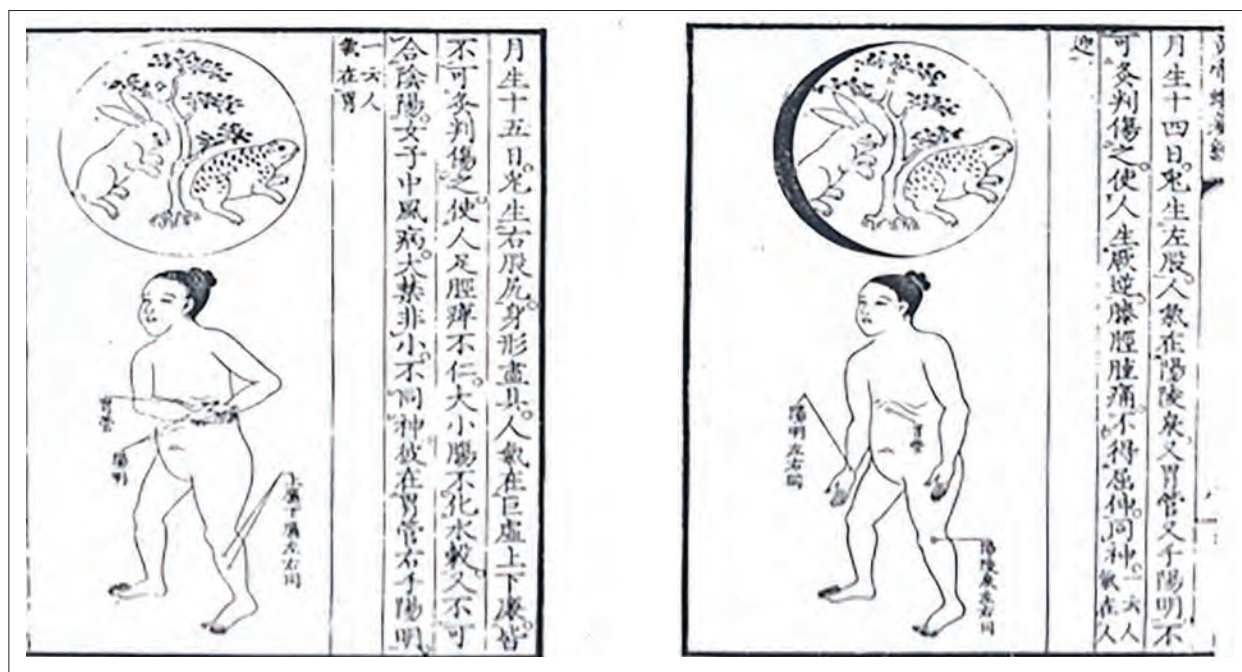 月生十四日。兎生左股。人氣在陽陵泉又胃管又手陽明不
可灸判傷之。使人生厥逆。膝脛腫痛。不得屈伸。同神。一云人氣在人
迎
胃管
陽明左右同
陽陵泉左右同
月生十五日。兎生右股尻。身形盡具。人氣在巨虛上下廉。皆
不可灸判傷之。使人足脛痺不仁。大小腸不化水穀。又不可
合陰陽。女子中風病。大禁非小。不同神彼在胃管右手陽明。
一云人
氣在胃
胃管
陽明
上廉下廉左右同